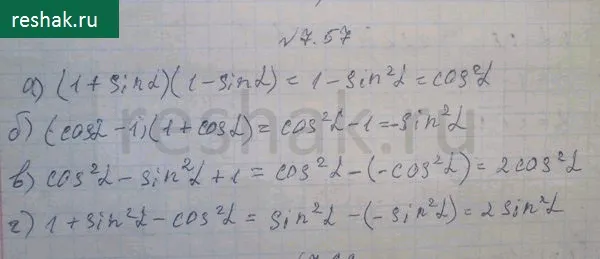 reshak.ru
№7.57
а) (1+sinα)(1-sinα) = 1-sin²α = cos²α
б) (cosα-1)(1+cosα) = cos²α-1=-sin²α
в) cos²α-sin²α+1 = cos²α-(-cos²α) = 2cos²α
г) 1+sin²α-cos²α = sin²α-(-sin²α) = 2sin²α